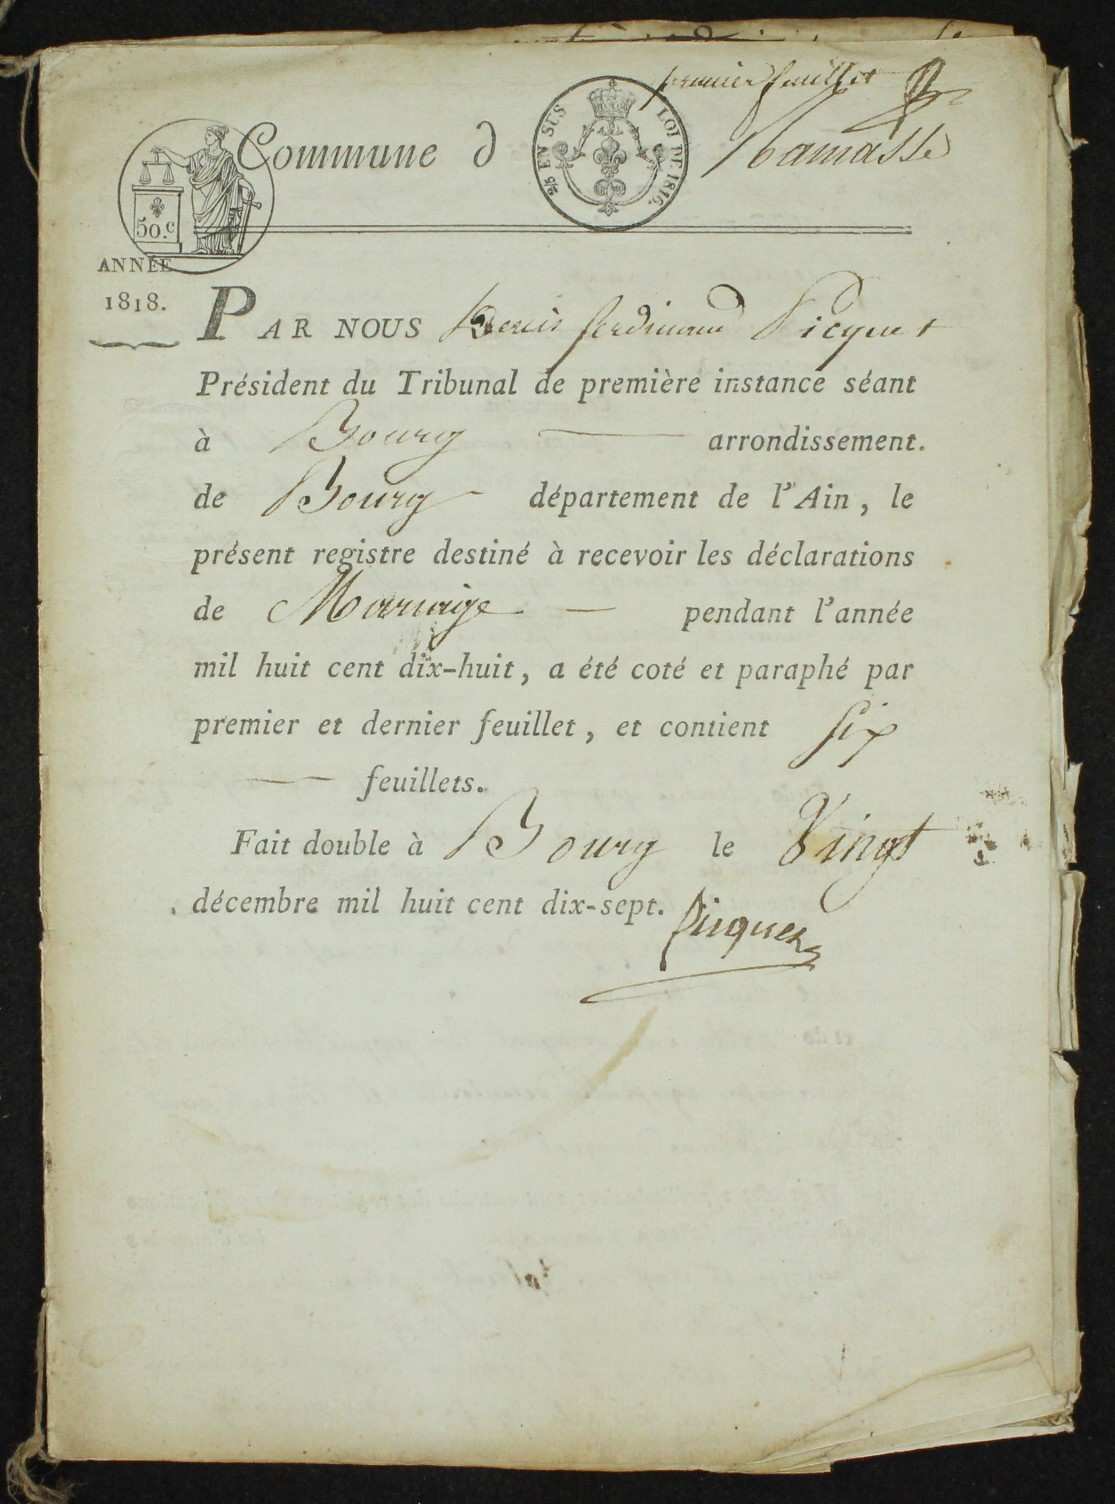 premier feuillet
Commune d Ramasse
2/5 EN SUS LOI DE 1816.
50.c
ANNÉE
1818.
PAR NOUS Denis ferdinand Picquet
Président du Tribunal de première instance séant
à Bourg arrondissement.
de Bourg département de l'Ain, le
présent registre destiné à recevoir les déclarations
de Mariage pendant l'année
mil huit cent dix-huit, a été coté et paraphé par
premier et dernier feuillet, et contient six
feuillets.
Fait double à Bourg le Vingt
décembre mil huit cent dix-sept.
Picquet